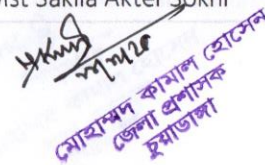 Mst Sakila Akter Sokhi
মোহাম্মদ কামাল হোসেন
জেলা প্রশাসক
চুয়াডাঙ্গা